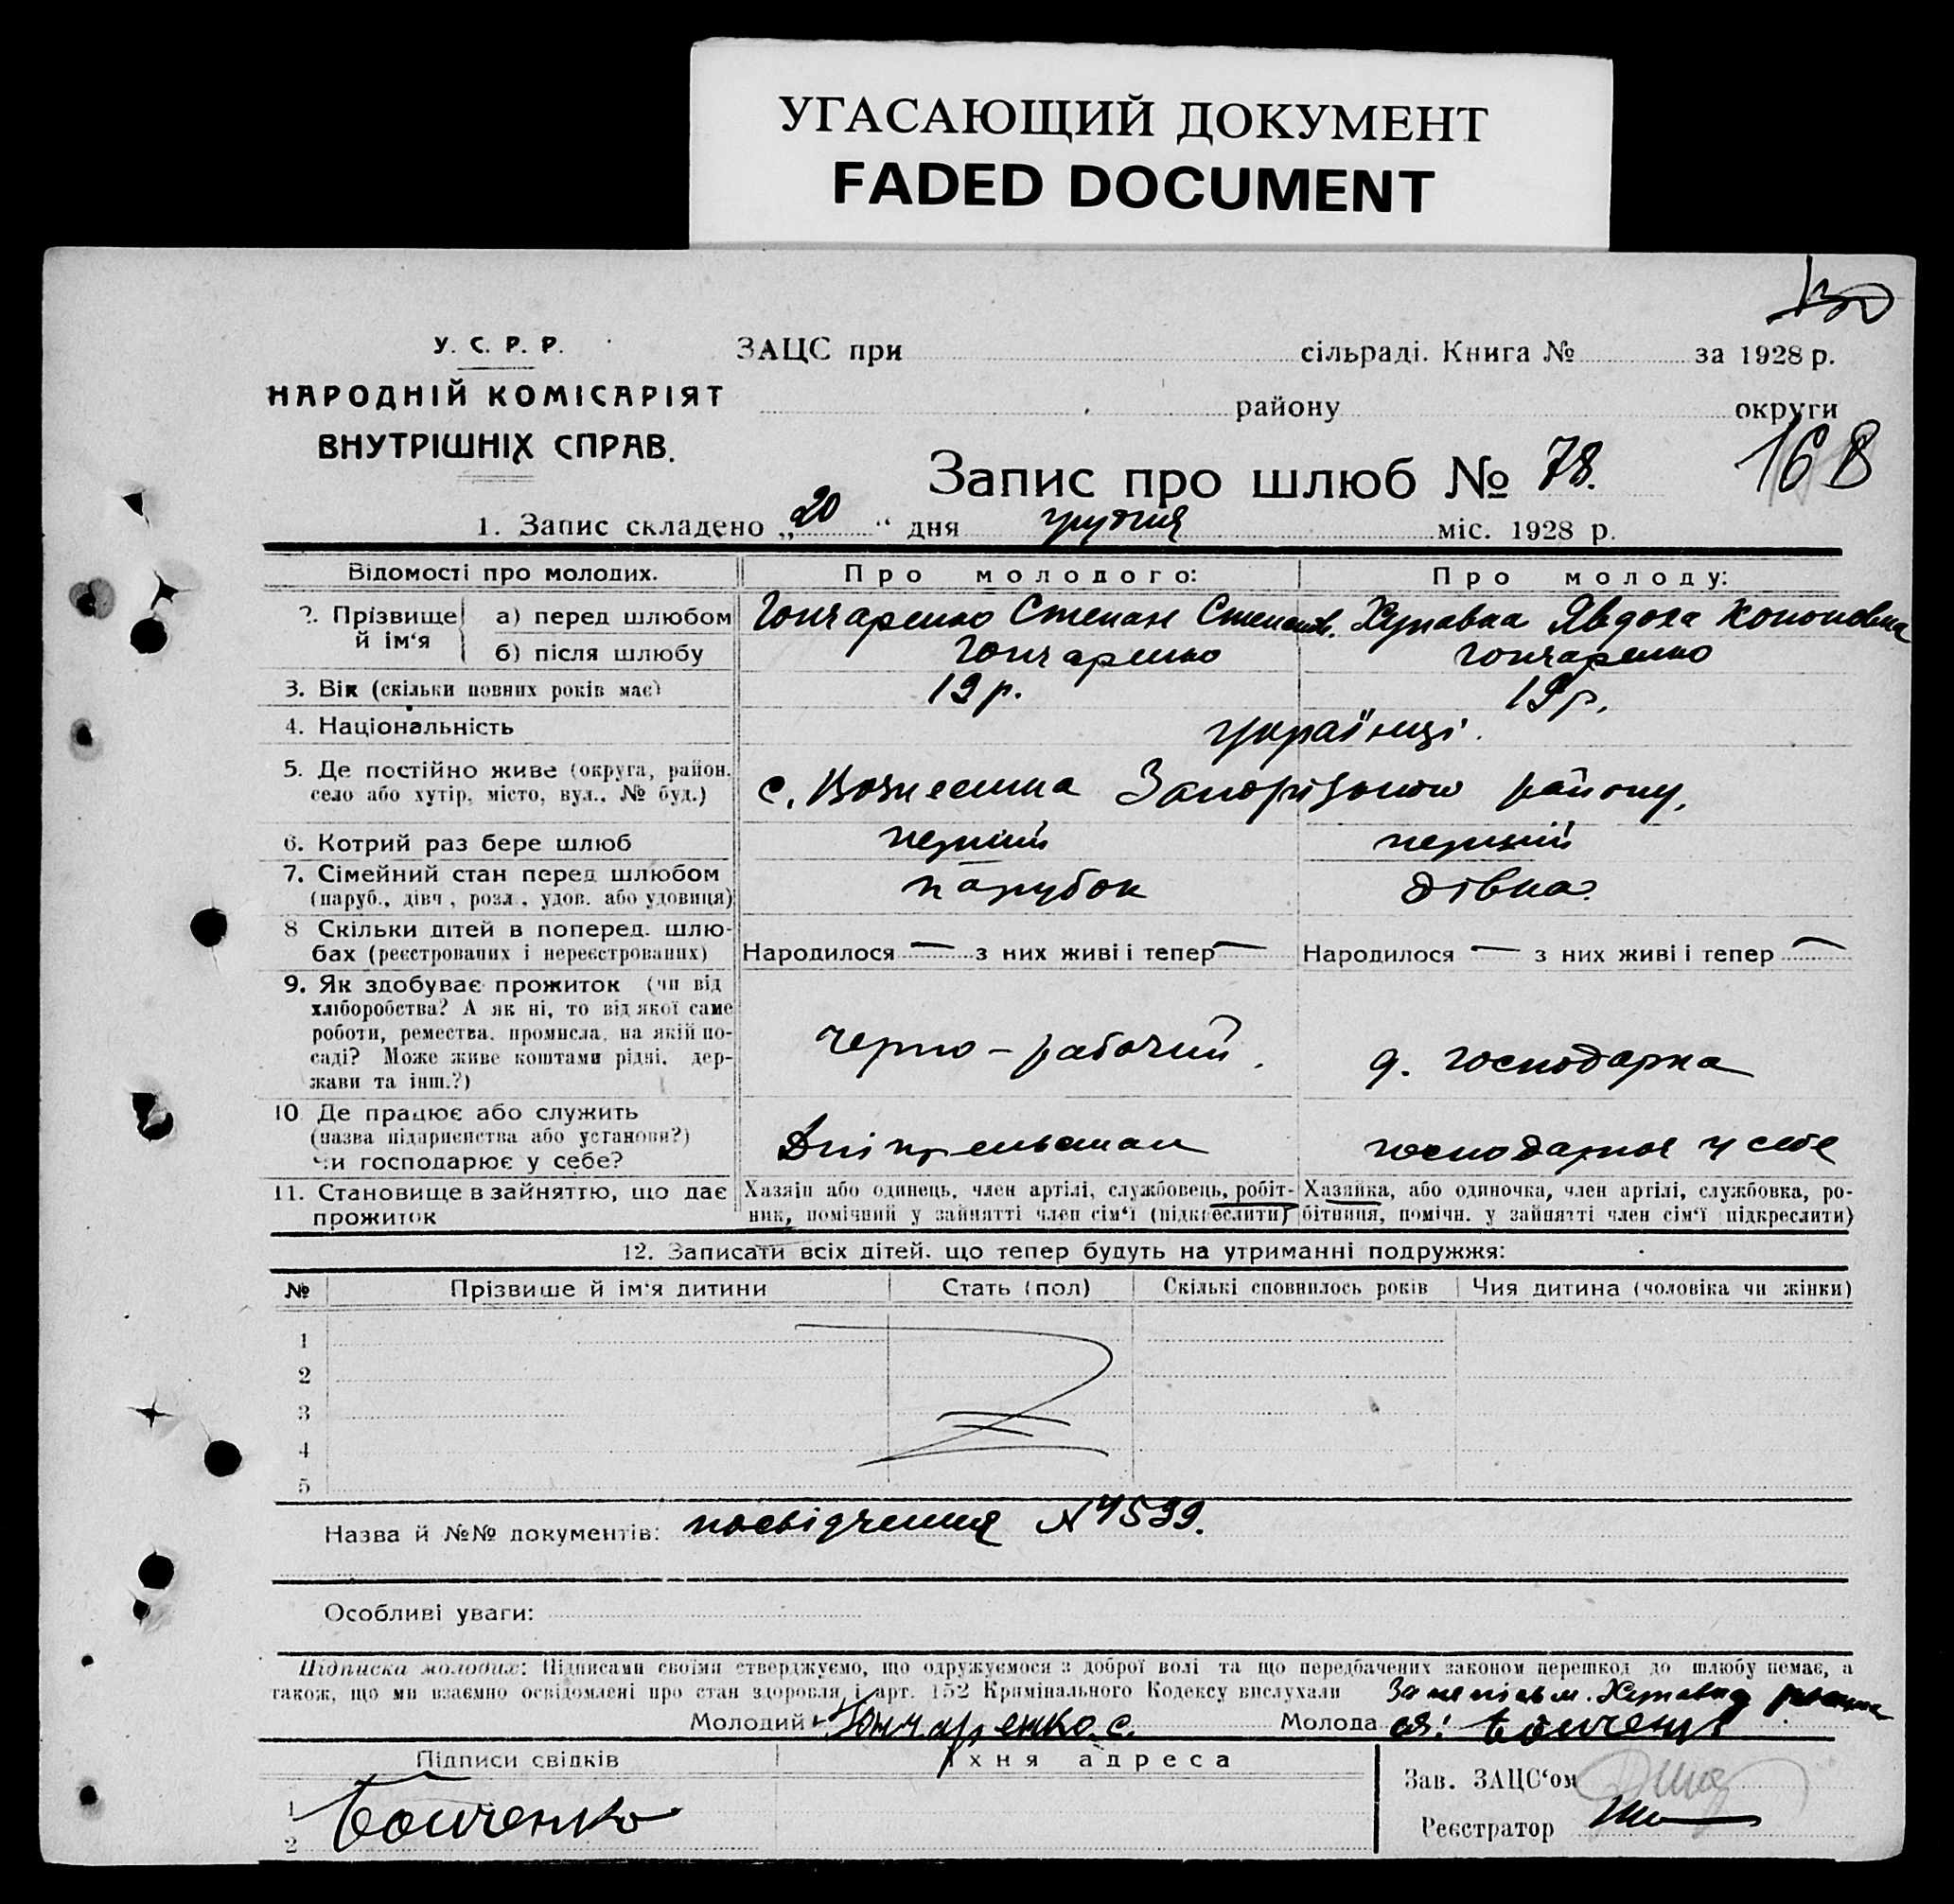 УГАСАЮЩИЙ ДОКУМЕНТ
FADED DOCUMENT
У. С. Р. Р.
НАРОДНІЙ КОМІСАРІЯТ
ВНУТРІШНІХ СПРАВ.
ЗАЦС при сільраді. Книга № за 1928 р.
району округи
168
Запис про шлюб № 78.
1. Запис складено „20“ дня грудня міс. 1928 р.
Відомості про молодих. Про молодого: Про молоду:
2. Прізвище й ім‘я а) перед шлюбом Гончаренко Степан Степанов. Хупавка Явдоха Кононовна
б) після шлюбу Гончаренко Гончаренко
3. Вік (скільки повних років має) 19 р. 19 р.
4. Національність Українці.
5. Де постійно живе (округа, район,
село або хутір, місто, вул., № буд.) с. Вознесенка Запорізького району,
6. Котрий раз бере шлюб перший перший
7. Сімейний стан перед шлюбом
(паруб., дівч., розл., удов. або удовиця) парубок дівка
8 Скільки дітей в поперед. шлю-
бах (реєстрованих і нереєстрованих) Народилося — з них живі і тепер — Народилося — з них живі і тепер —
9. Як здобуває прожиток (чи від
хліборобства? А як ні, то від якої саме
роботи, ремества, промисла, на якій по-
саді? Може живе коштами рідні, дер-
жави та інш.?) черно-рабочий. д. господарка
10 Де працює або служить
(назва підприємства або установи?)
чи господарює у себе? Дніпрельстан господарює у себе
11. Становище в зайняттю, що дає
прожиток
Хазяїн або одинець, член артілі, службовець, робіт-
ник, помічний у зайнятті член сім‘ї (підкреслити)
Хазяйка, або одиночка, член артілі, службовка, ро-
бітниця, помічн. у зайнятті член сім‘ї підкреслити)
12. Записати всіх дітей, що тепер будуть на утриманні подружжя:
№ Прізвище й ім‘я дитини Стать (пол) Скількі сповнилось років Чия дитина (чоловіка чи жінки)
1
2
3
4
5
Назва й №№ документів: посвідчення №
Особливі уваги:
Підписка молодих: Підписами своїми стверджуємо, що одружуємося з доброї волі та що передбачених законом перешкод до шлюбу немає, а
також, що ми взаємно освідомлені про стан здоровля і арт. 152 Кримінального Кодексу вислухали За неписьм. Хупавка
Молодий Гончаренко. С. Молода
Підписи свідків Їхня адреса
Зав. ЗАЦС‘ом
1
2 Бойченко
Реєстратор